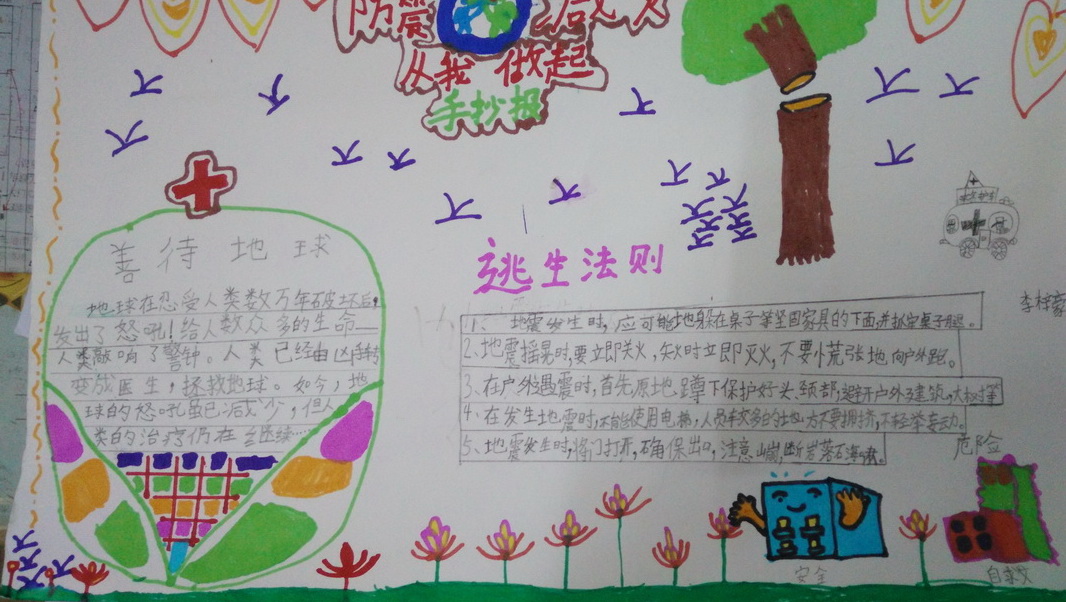 防震 减灾
从我做起
手抄报
善待地球
地球在忍受人类数万年破坏后,
发出了怒吼!给人数众多的生命——
人类敲响了警钟。人类已经由凶手转
变成医生,拯救地球。如今,地
球的怒吼虽已减少,但人
类的治疗仍在继续……
逃生法则
1、地震发生时,应可能地躲在桌子等坚固家具的下面,并抓牢桌子腿。
2、地震摇晃时,要立即关火,失火时立即灭火,不要慌张地向户外跑。
3、在户外遇震时,首先原地蹲下保护好头、颈部,避开户外建筑,大树等
4、在发生地震时,不能使用电梯,人员多的地方不要拥挤,不轻举妄动。
5、地震发生时,将门打开,确保出口,注意山崩,断岩落石海啸。
危险
安全